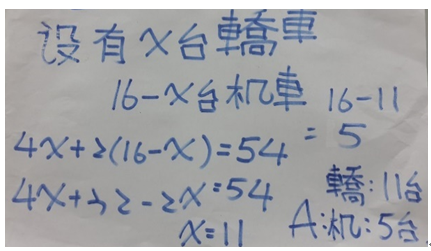 设有X台轎車
16-X台机車
16-11
= 5
4X+2(16-X)=54
4X+32-2X=54
X=11
轎:11台
A:机:5台